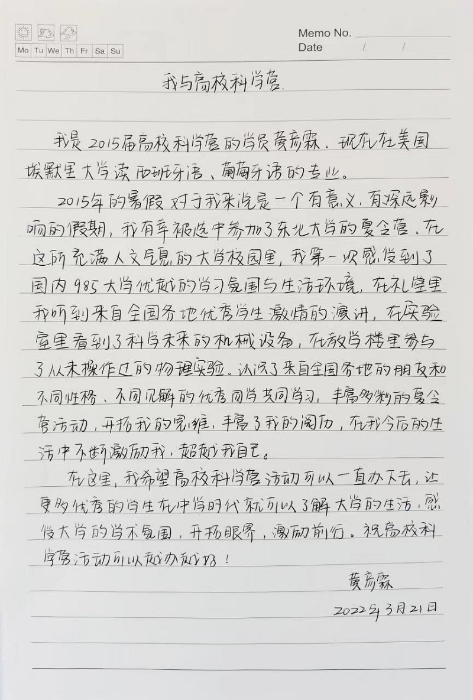 Memo No.
Mo Tu We Th Fr Sa Su
Date / /
我与高校科学营
我是2015届高校科学营的学员黄彦霖、现在在美国
埃默里大学读西班牙语、葡萄牙语的专业。
2015年的暑假对于我来说是一个有意义,有深远影
响的假期,我有幸被选中参加了东北大学的夏令营、在
这所充满人文气息的大学校园里,我第一次感受到了
国内985大学优越的学习氛围与生活环境、在礼堂里
我听到来自全国各地优秀学生激情的演讲,在实验
室里看到了科学未来的机械设备,在教学楼里参与
了从未操作过的物理实验。认识了来自全国各地的朋友和
不同性格、不同见解的优秀同学共同学习,丰富多彩的夏令
营活动,开拓我的思维,丰富了我的阅历,在我今后的生
活中不断激励我,超越我自己。
在这里,我希望高校科学营活动可以一直办下去,让
更多优秀的学生在中学时代就可以了解大学的生活,感
受大学的学术氛围,开拓眼界,激励前行。祝高校科
学营活动可以越办越好!
黄彦霖
2022年3月21日